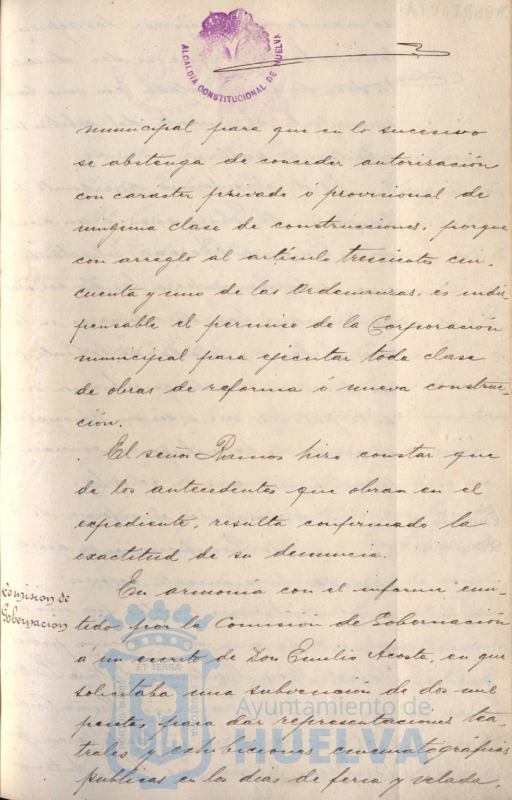 ALCALDÍA CONSTITUCIONAL DE HUELVA
municipal para que en lo sucesivo
se abstenga de conceder autorización
con carácter privado ó provisional de
ninguna clase de construcciones, porque
con arreglo al artículo trescientos cin-
cuenta y uno de las Ordenanzas, és indis-
pensable el permiso de la Corporación
municipal para ejecutar toda clase
de obras de reforma ó nueva construc-
ción.
El señor Ramos hizo constar que
de los antecedentes que obran en el
expediente, resulta confirmado la
exactitud de su denuncia.
Comisión de
Gobernación
En armonía con el informe emi-
tido por la Comisión de Gobernación
á un escrito de Don Emilio Acosta, en que
solicitaba una subvención de dos mil
pesetas para dar representaciones tea-
trales y exhibiciones cinematográficas
públicas en los días de feria y velada,
Ayuntamiento de
HUELVA